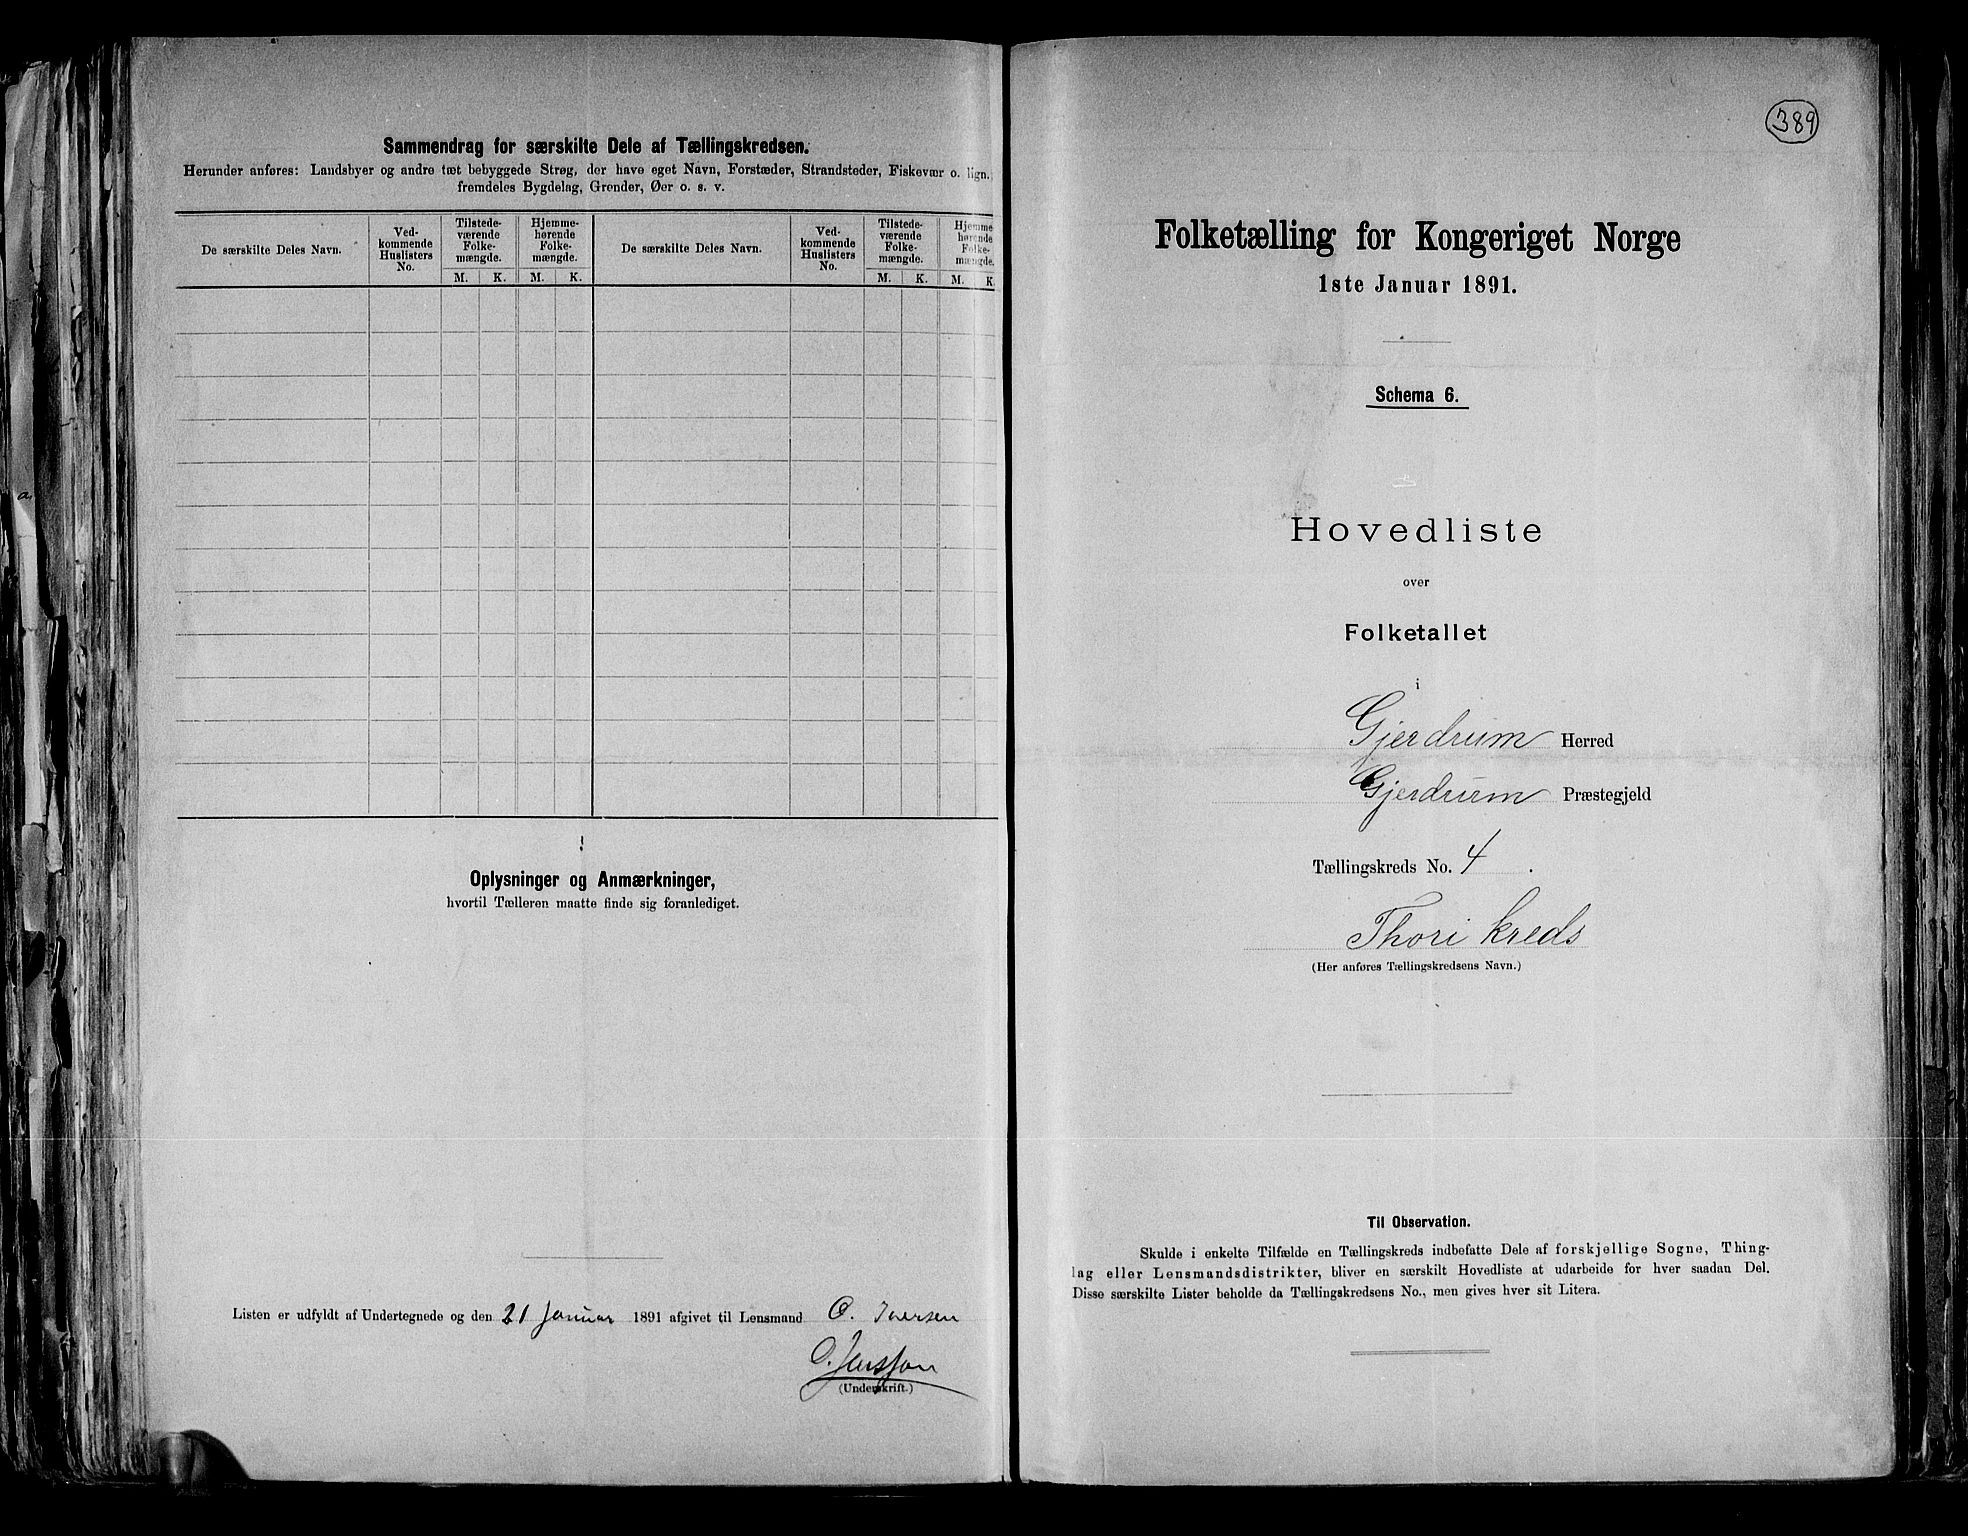 Sammendrag for særskilte Dele af Tællingskredsen.
Herunder anføres: Landsbyer og andre tæt bebyggede Strøg, der have eget Navn, Forstæder, Strandsteder, Fiskevær o. lign.;
fremdeles Bygdelag, Grender, Øer o. s. v.
De særskilte Deles Navn.
Ved-
kommende
Huslisters
No.
Tilstede-
værende
Folke-
mængde.
Hjemme-
hørende
Folke-
mængde.
M. K. M. K.
De særskilte Deles Navn.
Ved-
kommende
Huslisters
No.
Tilstede-
værende
Folke-
mængde.
Hjemme
hørende
Folke-
mængde.
M. K. M. K.
Oplysninger og Anmærkninger,
hvortil Tælleren maatte finde sig foranlediget.
Listen er udfyldt af Undertegnede og den 21 Januar 1891 afgivet til Lensmand O. Iversen
(Underskrift.)
389
Folketælling for Kongeriget Norge
1ste Januar 1891.
Schema 6.
Hovedliste
over
Folketallet
i
Gjerdrum Herred
Gjerdrum Præstegjeld
Tællingskreds No. 4.
Thori kreds
(Her anføres Tællingskredsens Navn.)
Til Observation.
Skulde i enkelte Tilfælde en Tællingskreds indbefatte Dele af forskjellige Sogne, Thing-
lag eller Lensmandsdistrikter, bliver en særskilt Hovedliste at udarbeide for hver saadan Del.
Disse særskilte Lister beholde da Tællingskredsens No., men gives hver sit Litera.